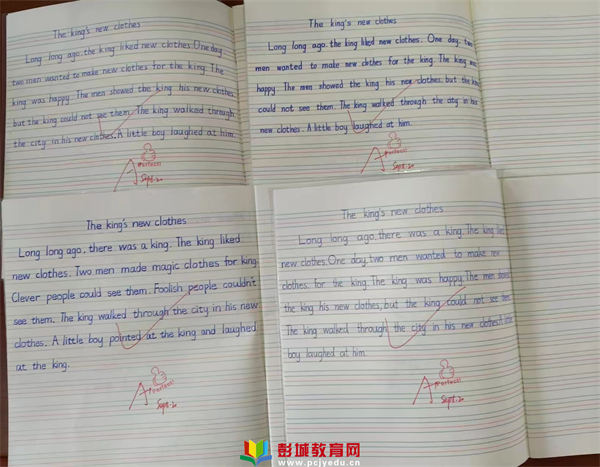 The king's new clothes
Long long ago, the king liked new clothes. One day,
two men wanted to make new clothes for the king. The
king was happy. The men showed the king his new clothes,
but the king could not see them. The king walked through
the city in his new clothes. A little boy laughed at him.
A
Perfect!
Sept.20
The king's new clothes
Long long ago, the king liked new clothes. One day, two
men wanted to make new clothes for the king. The king was
happy. The men showed the king his new clothes, but the king
could not see them. The king walked through the city in his
new clothes. A little boy laughed at him.
A
Perfect!
Sept.20
The king's new clothes
Long long ago, there was a king. The king liked
new clothes. Two men made magic clothes for king.
Clever people could see them. Foolish people couldn't
see them. The king walked through the city in his new
clothes. A little boy pointed at the king and laughed
at the king.
A
Perfect!
Sept.20
The king's new clothes
Long long ago, there was a king. The king liked
new clothes. One day, two men wanted to make new
clothes for the king. The king was happy. The men showed
the king his new clothes, but the king could not see them.
The king walked through the city in his new clothes. A little
boy laughed at him.
A
Perfect!
Sept.20
彭城教育网
www.pcjyedu.cn